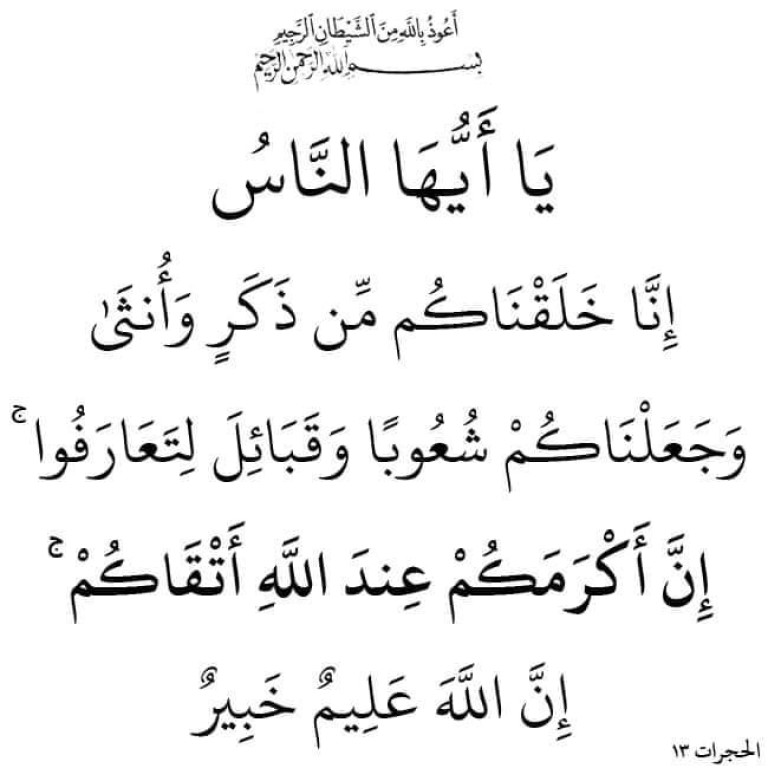 أَعُوذُ بِاللَّهِ مِنَ الشَّيْطَانِ الرَّجِيمِ
بِسْمِ اللَّهِ الرَّحْمَٰنِ الرَّحِيمِ
يَا أَيُّهَا النَّاسُ
إِنَّا خَلَقْنَاكُم مِّن ذَكَرٍ وَأُنثَىٰ
وَجَعَلْنَاكُمْ شُعُوبًا وَقَبَائِلَ لِتَعَارَفُوا ۚ
إِنَّ أَكْرَمَكُمْ عِندَ اللَّهِ أَتْقَاكُمْ ۚ
إِنَّ اللَّهَ عَلِيمٌ خَبِيرٌ
الحجرات ١٣